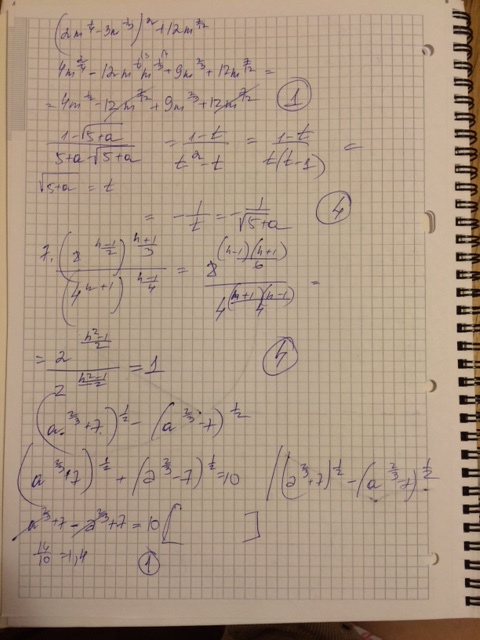 (2m^{1/4} - 3m^{1/3})^2 + 12m^{7/12}
4m^{2/4} - 12m^{1/4}m^{1/3} + 9m^{2/3} + 12m^{7/12} =
= 4m^{1/2} - 12m^{7/12} + 9m^{2/3} + 12m^{7/12} (1)
(1-√(5+a))/(5+a-√(5+a)) = (1-t)/(t^2-t) = (1-t)/(t(t-1)) =
√(5+a) = t
= -1/t = -1/√(5+a) (4)
7. (8^{(n-1)/2})^{(n+1)/3}/(4^{n+1})^{(n-1)/4} = 8^{(n-1)(n+1)/6}/4^{(n+1)(n-1)/4} =
= 2^{(n^2-1)/2}/2^{(n^2-1)/2} = 1 (4)
(a^{2/3}+7)^{1/2} - (a^{2/3}-7)^{1/2}
(a^{2/3}+7)^{1/2} + (a^{2/3}-7)^{1/2} = 10 | (a^{2/3}+7)^{1/2} - (a^{2/3}-7)^{1/2}
a^{2/3}+7 - a^{2/3}+7 = 10 [ ]
14/10 = 1,4 (1)